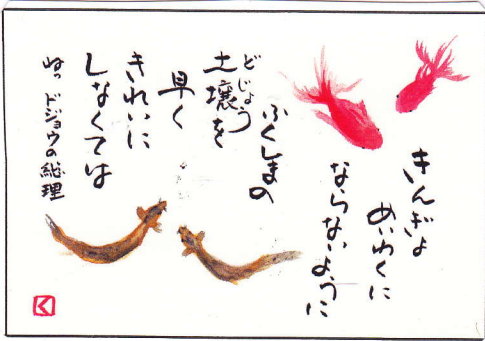 きんぎょ
めいわくに
ならないように
ふくしまの
どじょう
土壌を
早く
きれいに
しなくては
ドジョウの総理
く